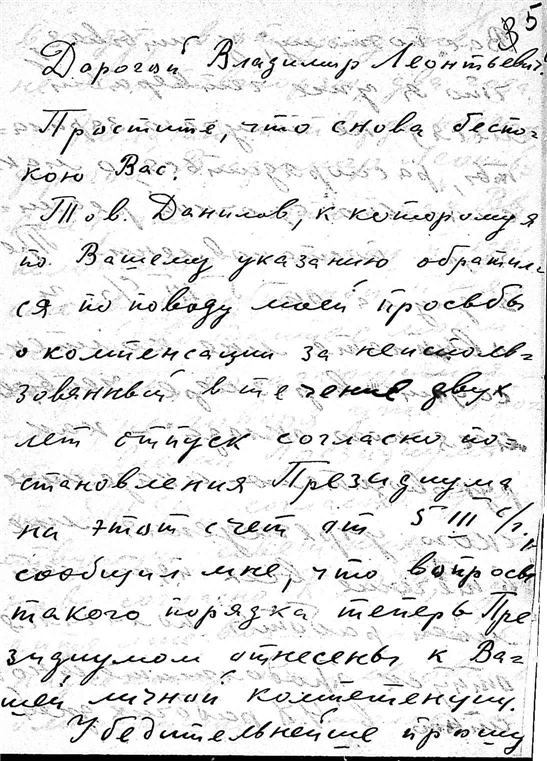 35
Дорогой Владимир Леонтьевич.
Простите, что снова беспо-
кою Вас.
Тов. Данилов, к которому я
по Вашему указанию обратил-
ся по поводу моей просьбы
о компенсации за неисполь-
зованный в течение двух
лет отпуск согласно по-
становления Президиума
на этот счет от 5 III с/г.,
сообщил мне, что вопросы
такого порядка теперь Пре-
зидиумом отнесены к Ва-
шей личной компетенции.
Убедительнейше прошу